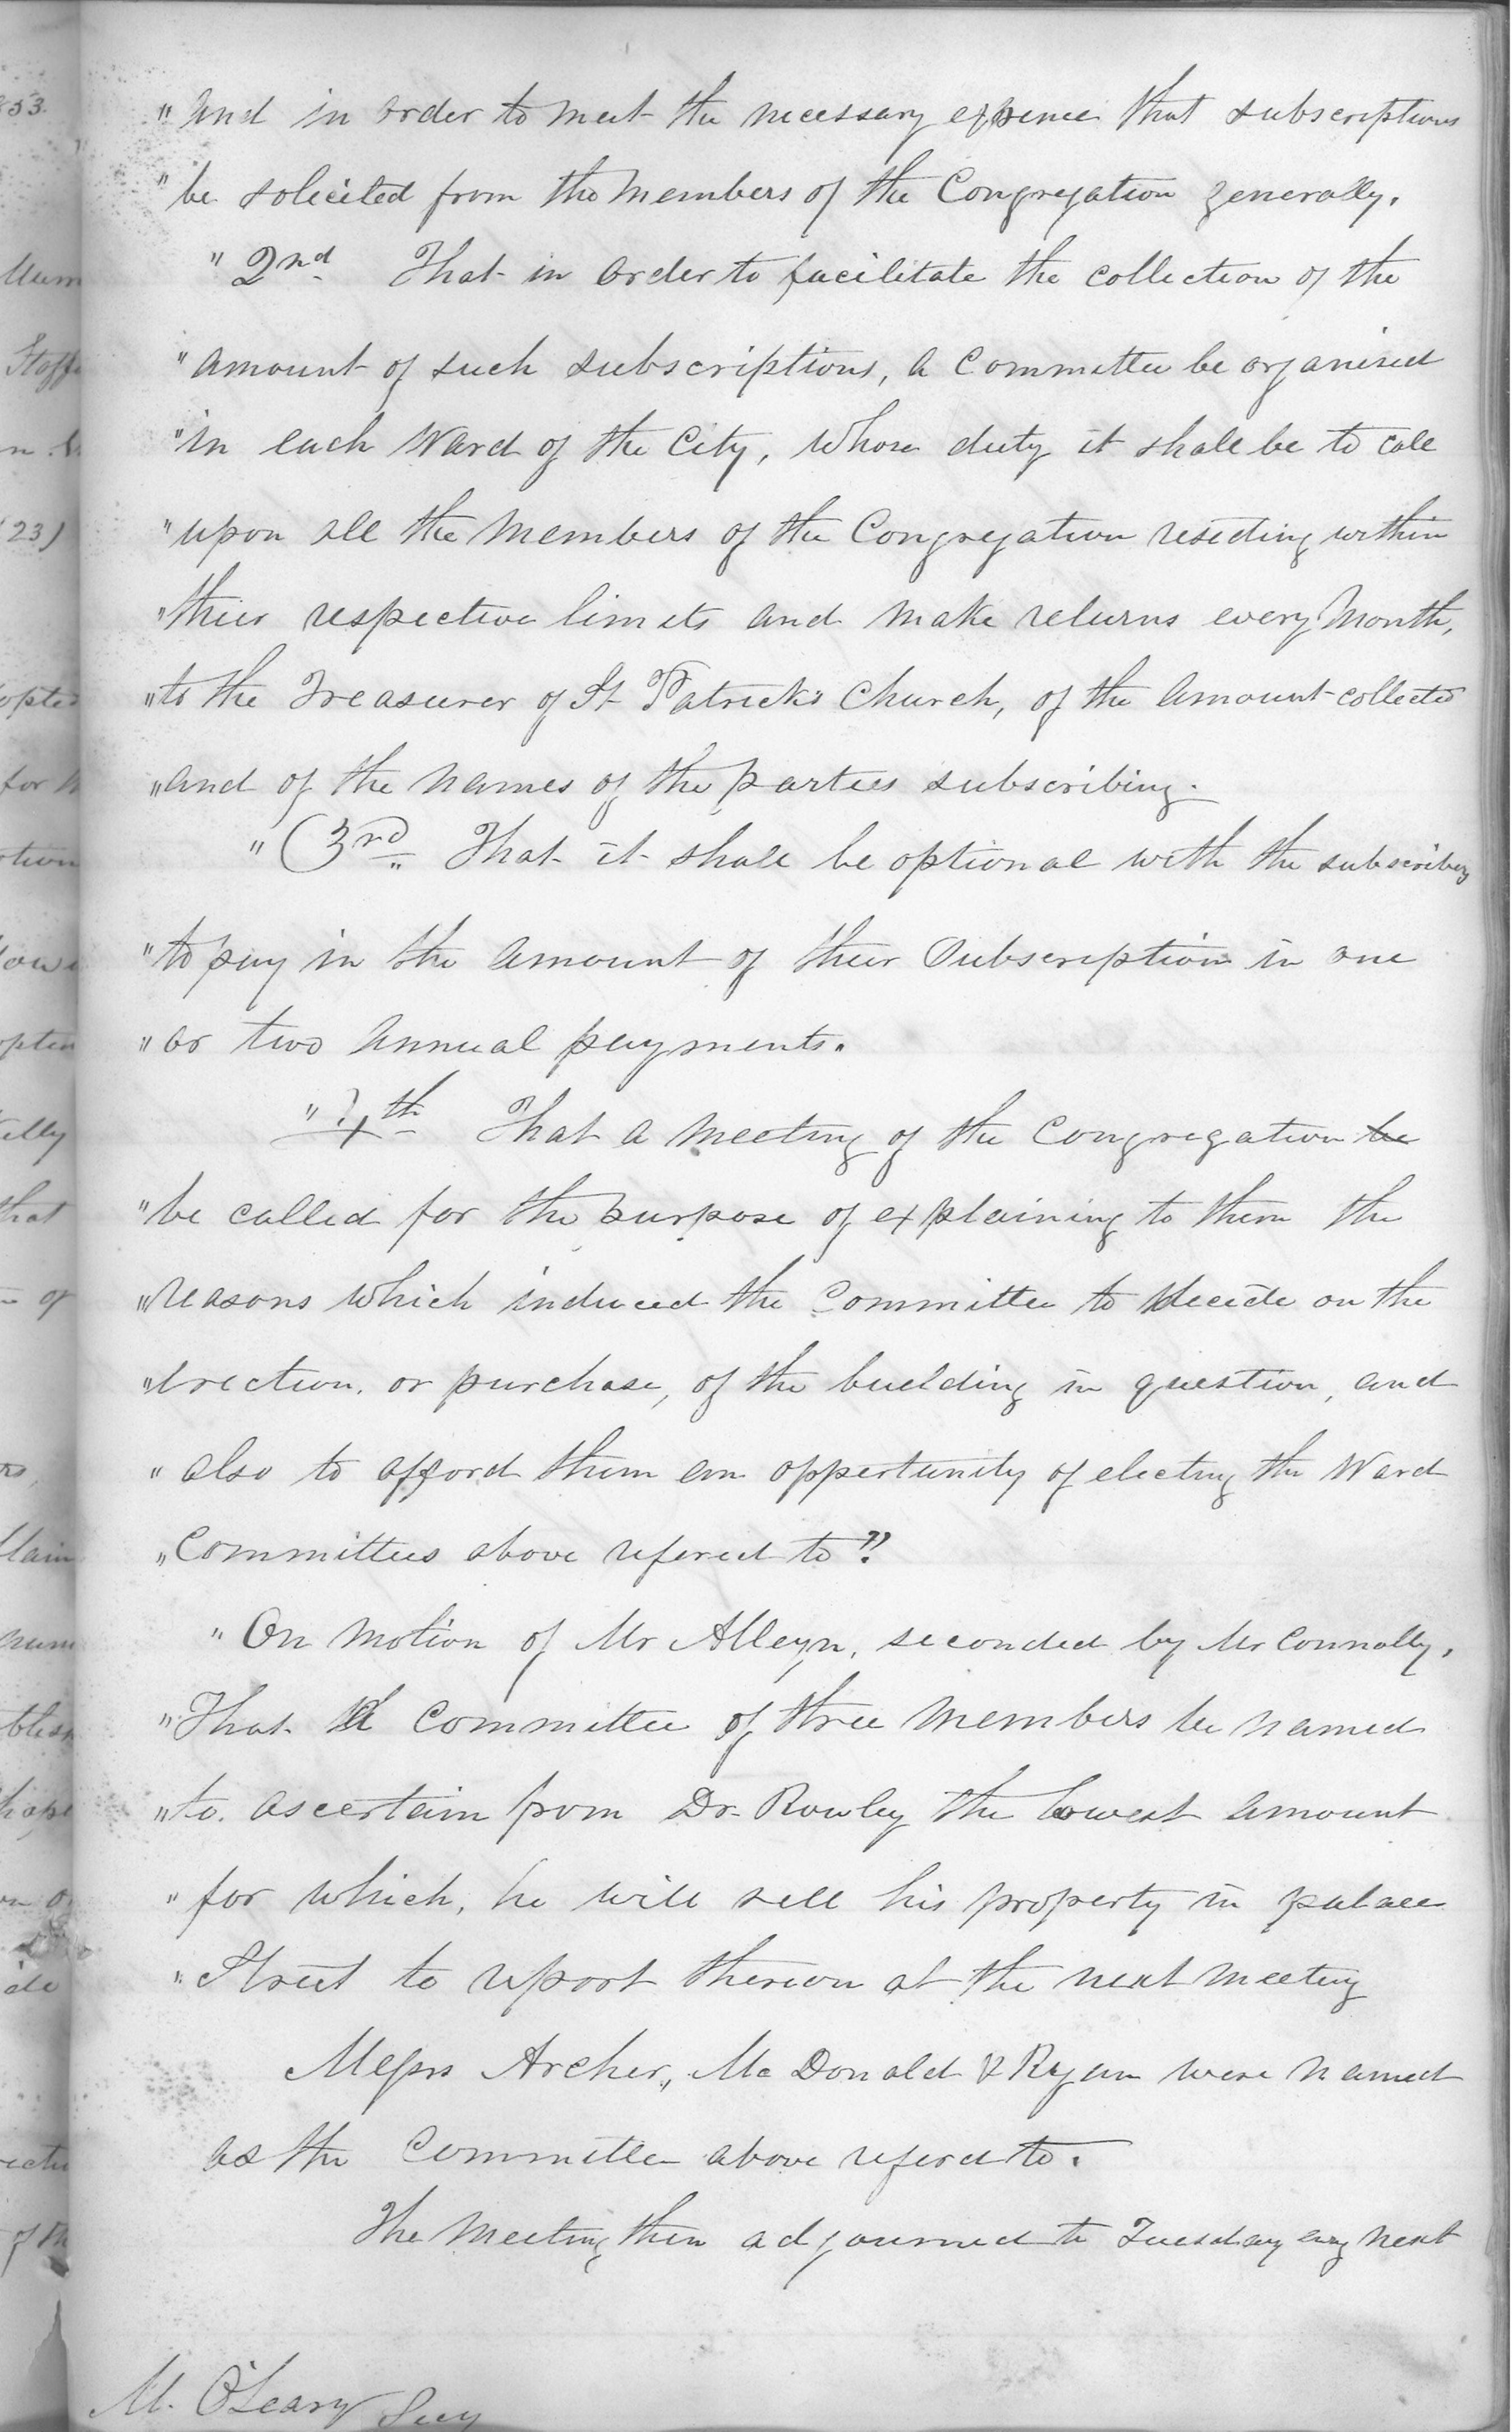 " And in order to meet the necessary expence that subscriptions
" be solicited from the Members of the Congregation generally.
" 2nd That in order to facilitate the collection of the
" amount of such subscriptions, a Committee be organised
" in each Ward of the City, whose duty it shall be to call
" upon all the Members of the Congregation residing within
" their respective limits and make returns every Month,
" to the Treasurer of St Patrick's Church, of the amount collected
" and of the names of the parties subscribing.
" (3rd That it shall be optional with the subscribers
" to pay in the amount of their Subscription in one
" or two annual payments.
" 4th That a meeting of the Congregation be
" be called for the purpose of explaining to them the
" reasons which induced the Committee to decide on the
" erection, or purchase, of the building in question, and
" also to afford them an oppertunity of electing the Ward
" Committees above refered to".
" On motion of Mr Alleyn, seconded by Mr Connolly,
" That a Committee of three Members be named
" to ascertain from Dr Rowley the lowest amount
" for which, he will sell his property in palace
" Street to report thereon at the next meeting
Messrs Archer, Mc Donald & Ryan were named
as the Committee above refered to.
The Meeting then adjourned to Tuesday eveng next
M. O'Leary Secy
53.
(23)
for
that
of